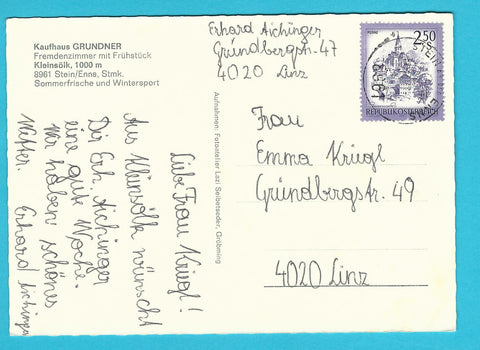 Kaufhaus GRUNDNER
Fremdenzimmer mit Frühstück
Kleinsölk, 1000 m
8961 Stein/Enns, Stmk.
Sommerfrische und Wintersport
Liebe Frau Kriegl!
Aus Kleinsölk wünscht
Dir Erh. Aichinger
eine gute Woche.
Wir haben schönes
Wetter. Erhard Aichinger
Aufnahmen: Fotoatelier Lazi Seibetseder, Gröbming
Erhard Aichinger
Gründbergstr. 47
4020 Linz
2.50
REPUBLIK ÖSTERREICH
8961
STEIN
ENNS
Frau
Emma Kriegl
Gründbergstr. 49
4020 Linz